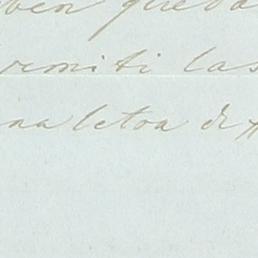 ben queda
remiti las
na letra de